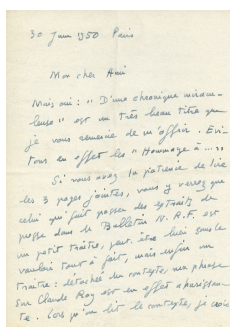 30 Juin 1950 Paris
Mon cher Ami
Mais oui : "D'une chronique miracu-
leuse" est un très beau titre que
je vous remercie de m'offrir. Evi-
tons en effet les "Hommage à ..."
Si vous avez la patience de lire
les 3 pages jointes, vous y verrez que
celui qui fait passer des extraits de
presse dans le Bulletin N.R.F. est
un petit traître, peut-être sans le
vouloir tout à fait, mais enfin un
traître : détachée du contexte, ma phrase
sur Claude Roy est en effet ahurissan-
te. Lorsqu'on lit le contexte, je crois